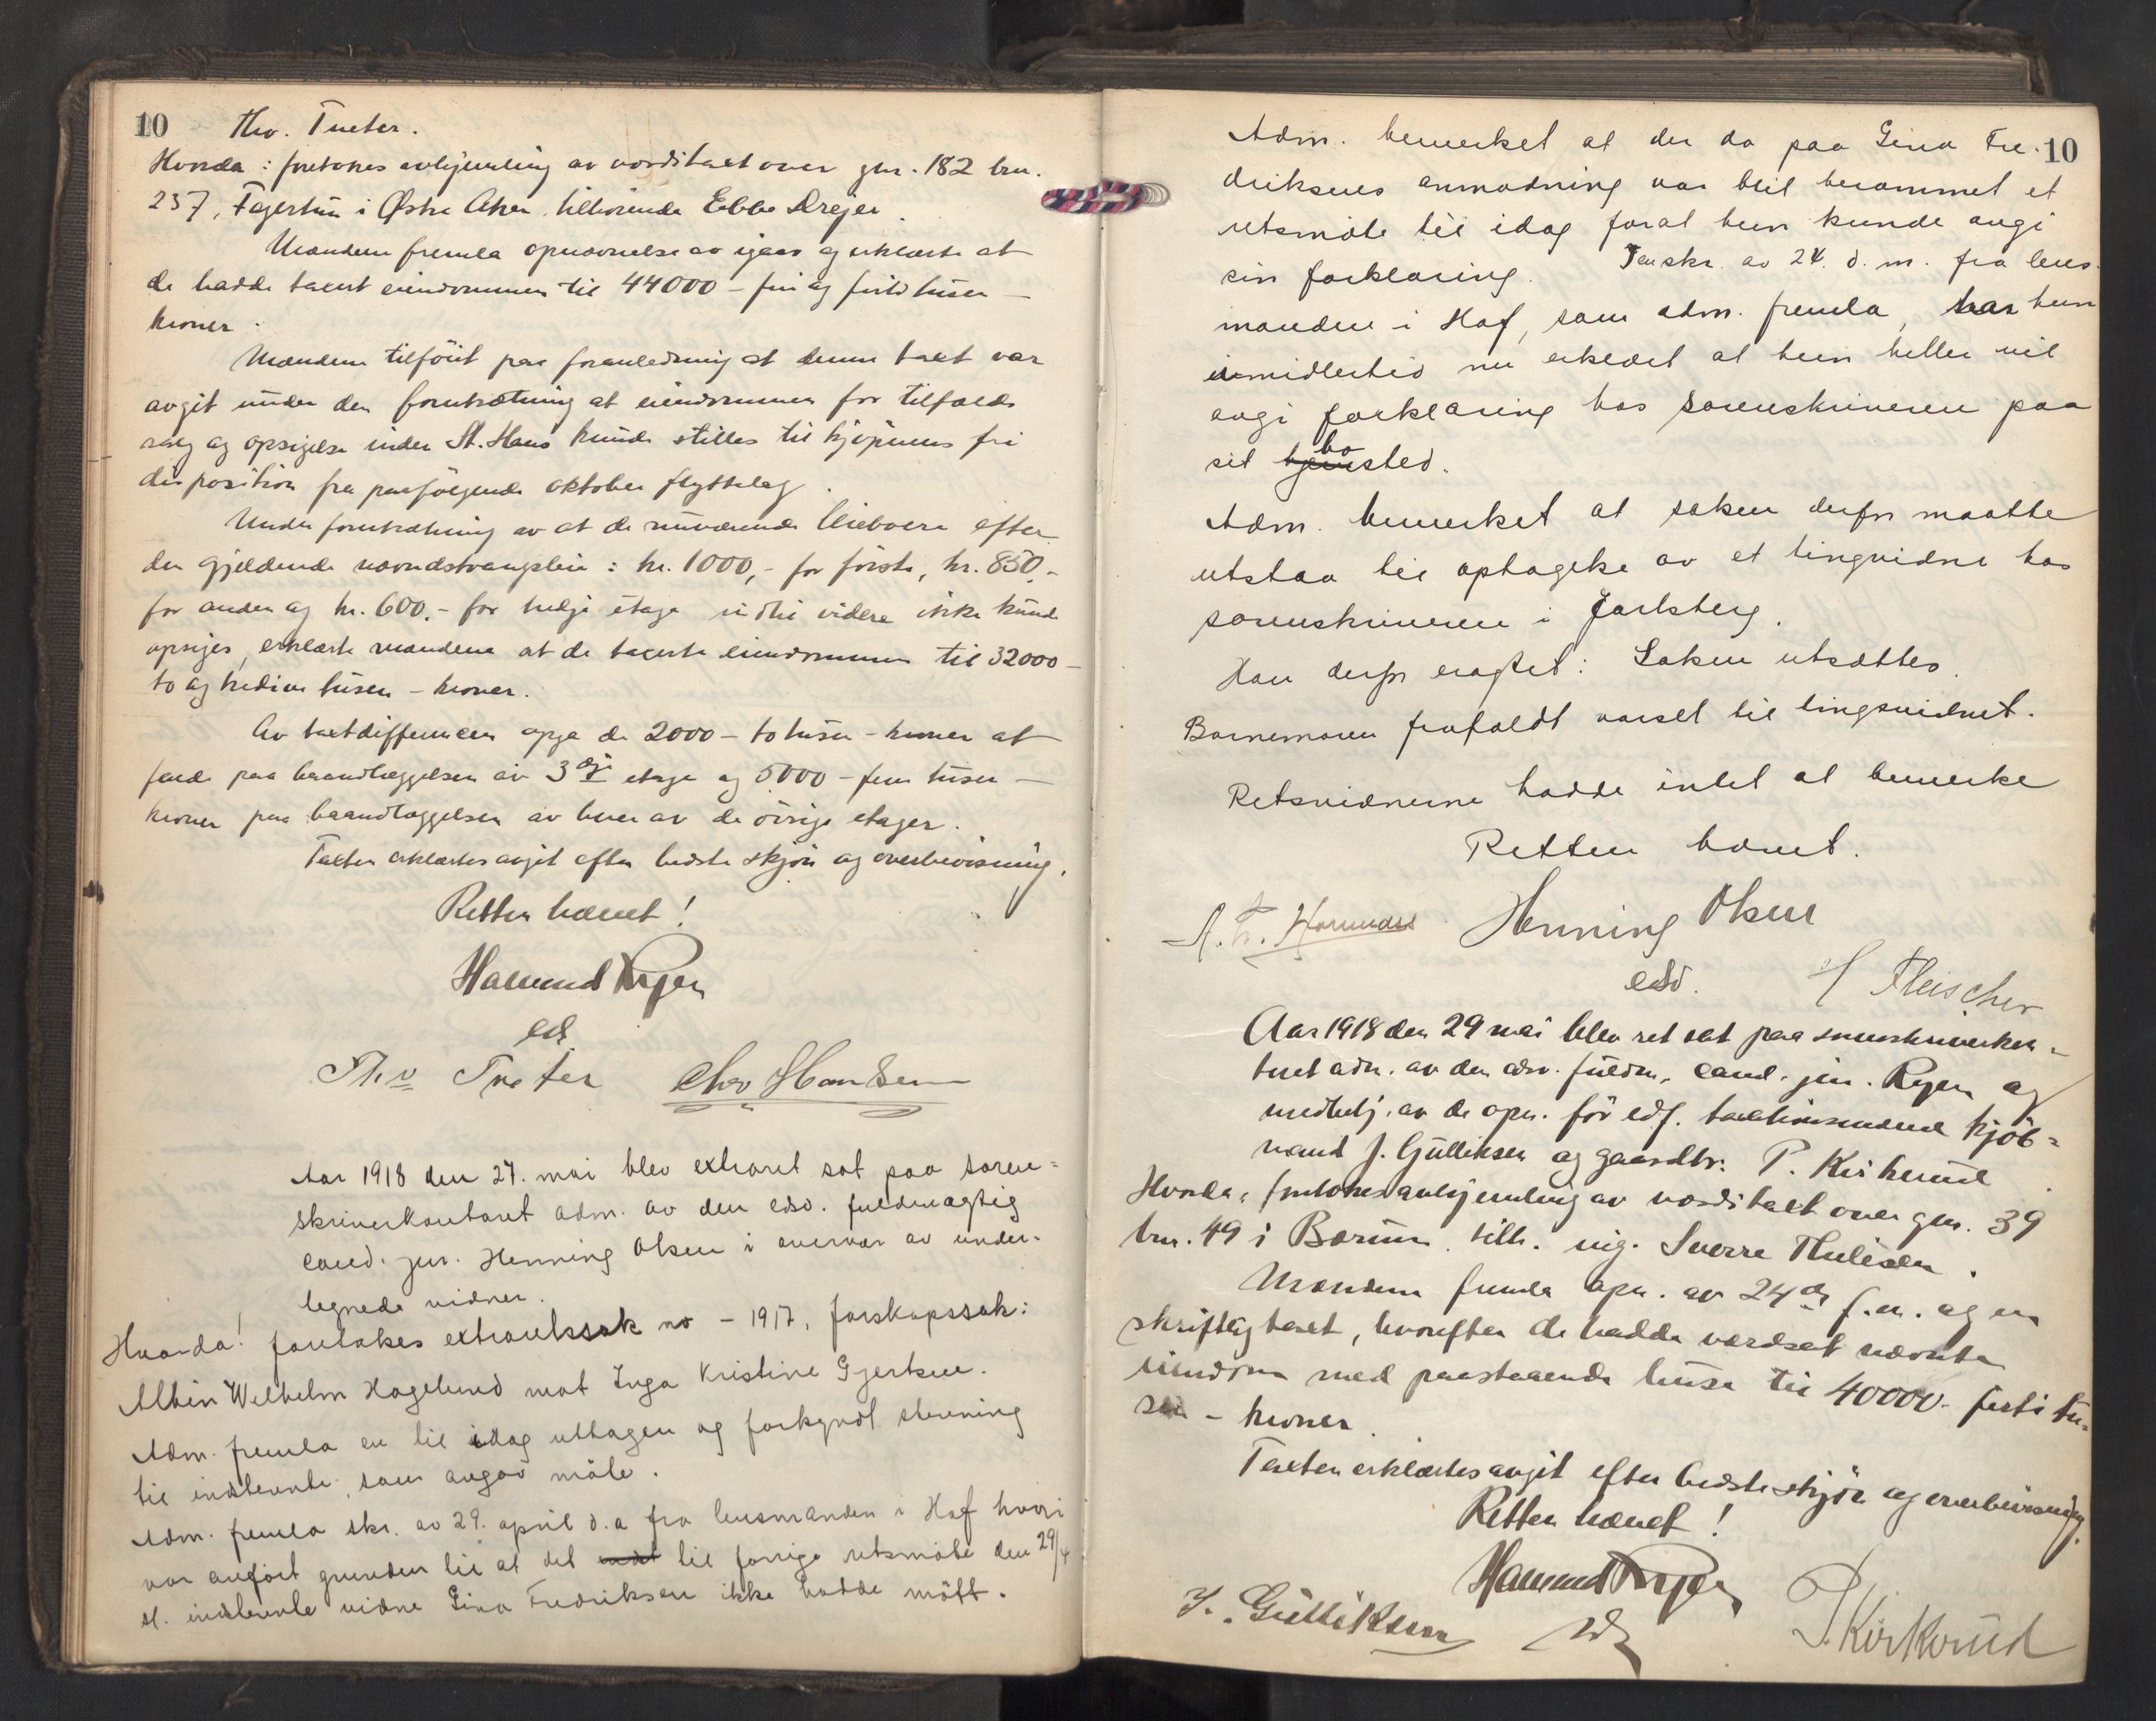 10 Thv. Tueter.
Hvorda: foretokes avhjemling av værditakst over gnr. 182 brn.
237, Fagertun i Østre Aker, tilhørende Ebbe Drejer.
Mændene fremla opnævnelse av igaar og erklærte at
de hadde taxert eiendommen til 44000 - firi og førti tusen -
kroner.
Mændene tilföiet paa foranledning at denne taxt var
avgit under den forutsætning at eiendommen for tilfælde
salg og opsigelse inden St. Hans kunde stilles til kjøperens fri
disposition fra paafølgende oktober flyttedag.
Under forutsætning av at de nuværende leieboere efter
den gjældende nævndstvangsleie: kr. 1000,- for förste, kr. 850,-
for anden og kr. 600.- for tredje etage indtil videre ikke kunde
opsiges, erklærte mændene at de taxerte eiendommen til 32000 -
to og tredive tusen - kroner.
Av taxtdifferencen opga de 2000 - to tusen - kroner at
falde paa baandlæggelsen av 3dje etage og 5000 - fem tusen -
kroner paa baandlæggelsen av hver av de øvrige etager.
Taxten erklærtes avgit efter bedste skjön og overbevisning.
Retten hævet!
Halvard Ryen
eds.
Thv Tueter Chr Hansen
Aar 1918 den 27. mai blev extraret sat paa soren-
skriverkontoret adm. av den edsv. fuldmægtig
cand. jur. Henning Olsen i overvær av under-
tegnede vidner.
Hvorda! foretokes extraretssak no - 1917, farskapssak:
Albin Wilhelm Hagelund mot Inga Kristine Gjertsen.
Adm. fremla en til idag uttagen og forkyndt stevning
til indstevnte, som avgav møte.
Adm. fremla skr. av 29. april d.a fra lensmanden i Hof hvori
var anført grunden til at det til forrige retsmöte den 29/4
indstevnte vidne Gina Fredriksen ikke hadde mött.
Adm. bemerket at der da paa Gina Fre- 10
driksens anmodning var blit berammet et
retsmöte til idag forat hun kunde avgi
sin forklaring. I en skr. av 24. d. m. fra lens-
manden i Hof, som adm. fremla, har hun
imidlertid nu erklært at hun heller vil
avgi forklaring hos sorenskriveren paa
sit bosted.
Adm. bemerket at saken derfor maatte
utstaa til optagelse av et tingsvidne hos
sorenskriveren i Jarlsberg.
Han derfor eragtet: Saken utsættes.
Barnemoren frafaldt varsel til tingsvidnet.
Retsvidnerne hadde intet at bemerke
Retten hævet.
Henning Olsen
edsv. H Fleischer
Aar 1918 den 29 mai blev ret sat paa sorenskriverkon-
toret adm. av den edsv. fuldm. cand. jur. Ryen og
medhelj. av de opn. för edf. taxtionsmænd kjöb-
mand J. Gulliksen og gaardbr. P. Kirkerud.
Hvorda: foretokes avhjemling av værditakst over gnr. 39
brn. 49 i Bærum. tilh. ing. Sverre Thulesen.
Mændene fremla opn. av 24de f.m. og en
skriftlig taxt, hvorefter de hadde værdsat nævnte
eiendom med paastaaende huse til 40000 - førti tu-
sen - kroner.
Taxten erklærtes avgit efter bedste skjön og overbevisning.
Retten hævet!
Halvard Ryen
J. Gulliksen P. Kirkerud